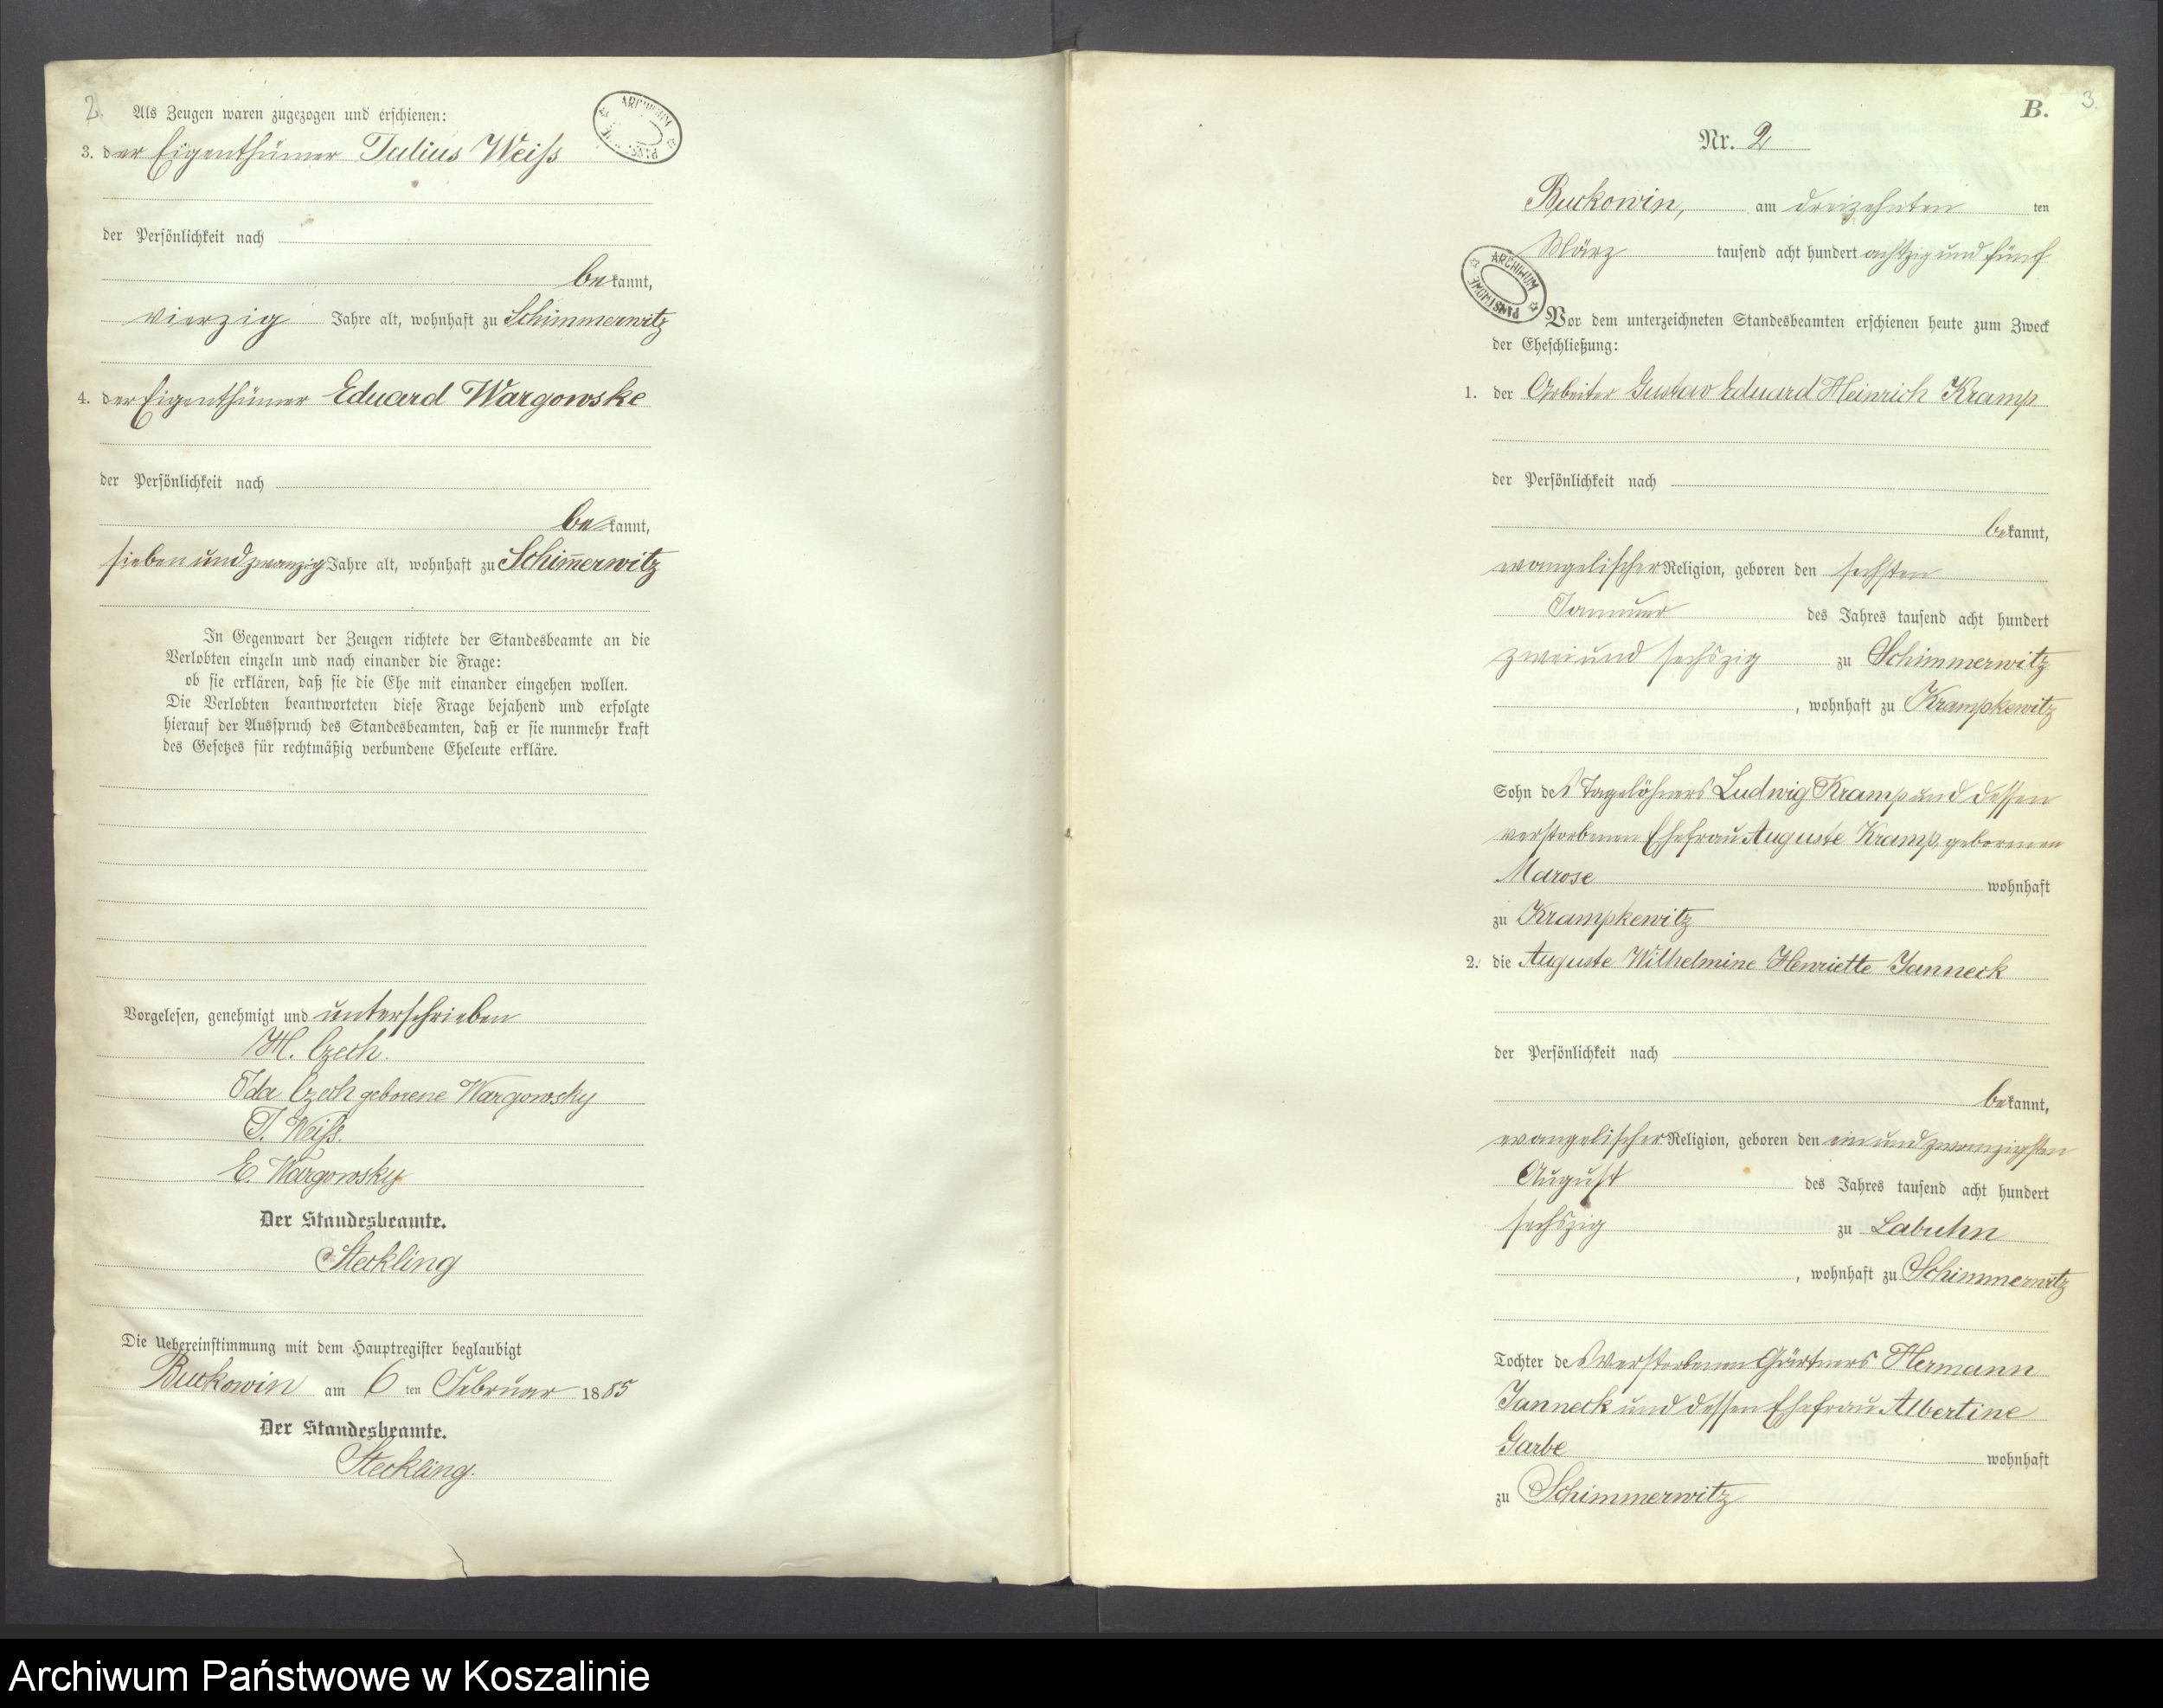 2.
Als Zeugen waren zugezogen und erschienen:
3. der Eigenthümer Julius Weiß
der Persönlichkeit nach
bekannt,
vierzig Jahre alt, wohnhaft zu Schimmerwitz
4. der Eigenthümer Eduard Wargowske
der Persönlichkeit nach
bekannt,
sieben und zwanzig Jahre alt, wohnhaft zu Schim̅erwitz
In Gegenwart der Zeugen richtete der Standesbeamte an die
Verlobten einzeln und nach einander die Frage:
ob sie erklären, daß sie die Ehe mit einander eingehen wollen.
Die Verlobten beantworteten diese Frage bejahend und erfolgte
hierauf der Ausspruch des Standesbeamten, daß er sie nunmehr kraft
des Gesetzes für rechtmäßig verbundene Eheleute erkläre.
Vorgelesen, genehmigt und unterschrieben
H. Czech.
Ida Czech geborene Wargowsky
J. Weiß.
E. Wargowsky
Der Standesbeamte.
Steckling
Die Uebereinstimmung mit dem Hauptregister beglaubigt
Buckowin am 6 ten Februar 1885
Der Standesbeamte.
Steckling.
ARCHIWUM
3.
B.
Nr. 2
Buckowin, am dreizehnten ten
März tausend acht hundert achtzig und fünf
ARCHIWUM PAŃSTWOWE
Vor dem unterzeichneten Standesbeamten erschienen heute zum Zweck
der Eheschließung:
1. der Arbeiter Gustav Eduard Heinrich Kramp
der Persönlichkeit nach
bekannt,
evangelischer Religion, geboren den sechsten
Januar des Jahres tausend acht hundert
zwei und sechszig zu Schimmerwitz
, wohnhaft zu Krampkewitz
Sohn des Tagelöhners Ludwig Kramp und dessen
verstorbenen Ehefrau Auguste Kramp, geborenen
Marose wohnhaft
zu Krampkewitz
2. die Auguste Wilhelmine Henriette Janneck
der Persönlichkeit nach
bekannt,
evangelischer Religion, geboren den ein und zwanzigsten
August des Jahres tausend acht hundert
sechszig zu Labuhn
, wohnhaft zu Schimmerwitz
Tochter des verstorbenen Gärtners Hermann
Janneck und dessen Ehefrau Albertine
Garbe wohnhaft
zu Schimmerwitz
Archiwum Państwowe w Koszalinie